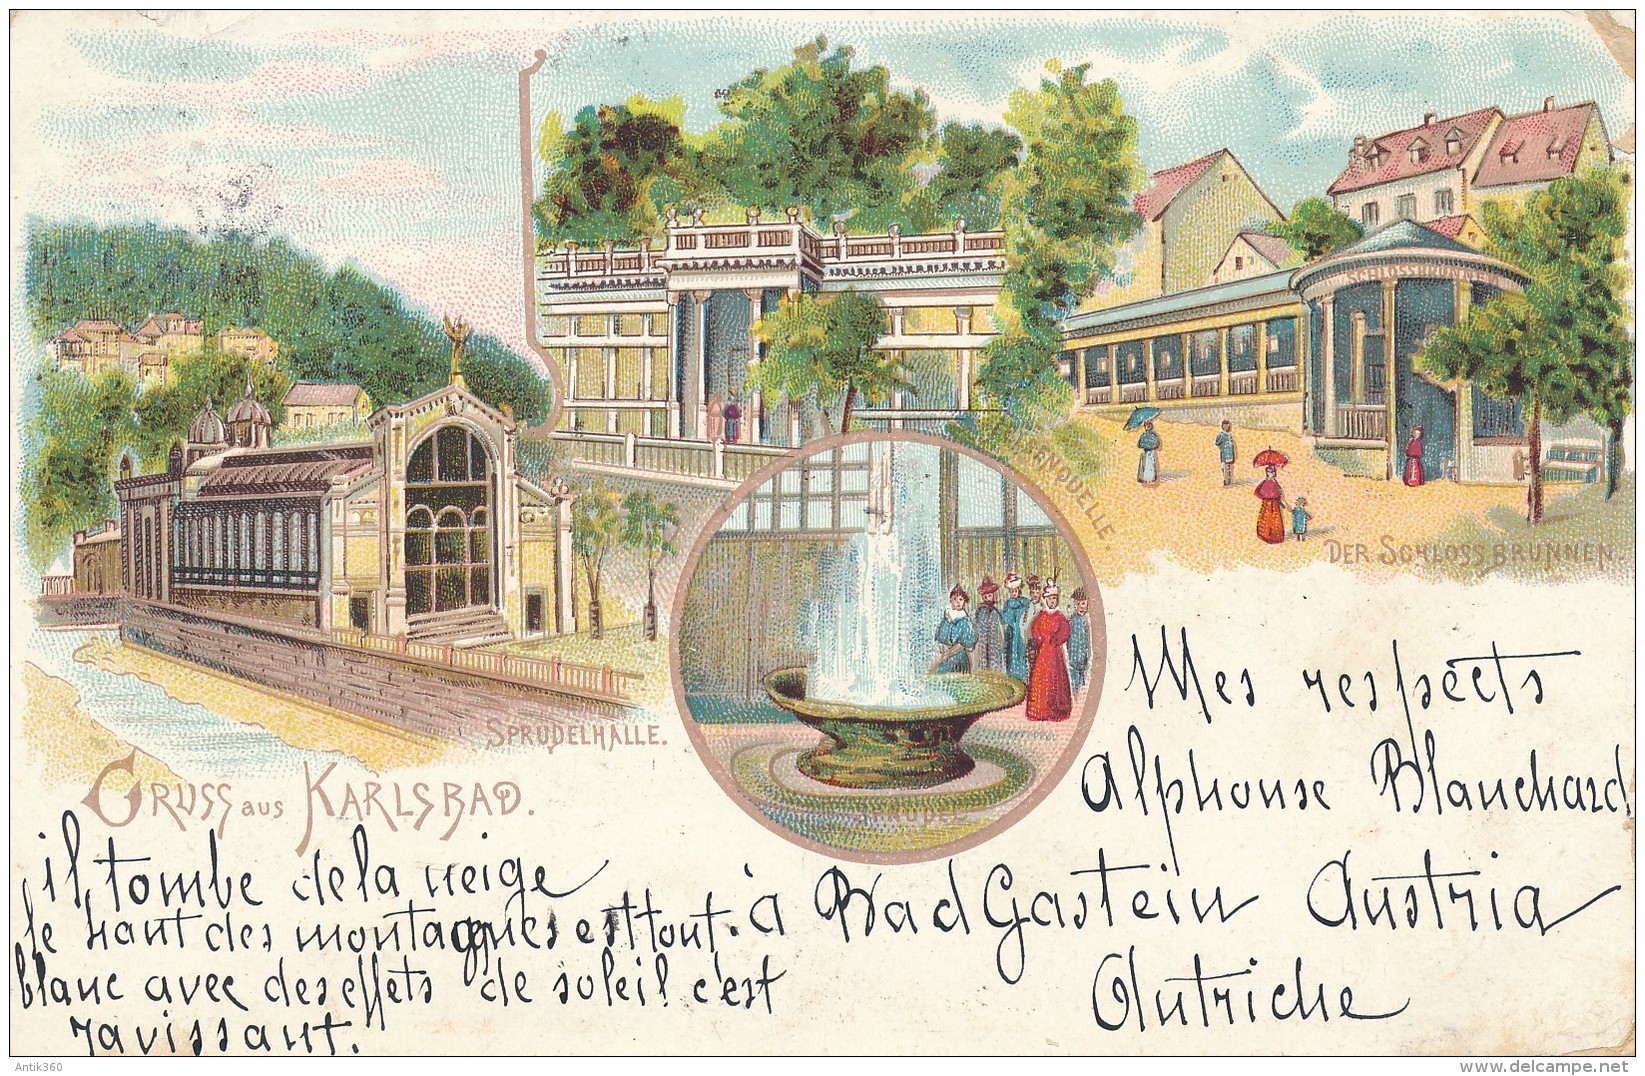 SCHLOSSBRUNN
DER SCHLOSSBRUNNEN.
SPRUDELHALLE.
SPRUDEL
GRUSS AUS KARLSBAD.
Mes respects
Alphonse Blanchard
à Bad Gastein Austria
Autriche
il tombe de la neige
le haut des montagnes est tout
blanc avec des effets de soleil c'est
ravissant.
Antik360
delcampe.net